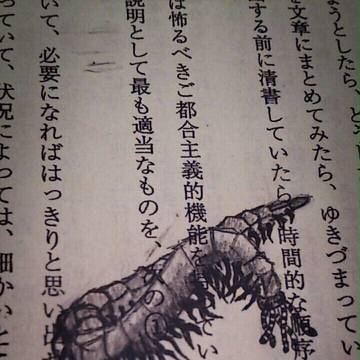 ようとしたら、ど
文章にまとめてみたら、ゆきづまってい
する前に清書していたら 時間的な順序
は怖るべきご都合主義的機能を てい
説明として最も適当なものを、 の
いて、必要になればはっきりと思い出
っていて、状況によっては、細かいと